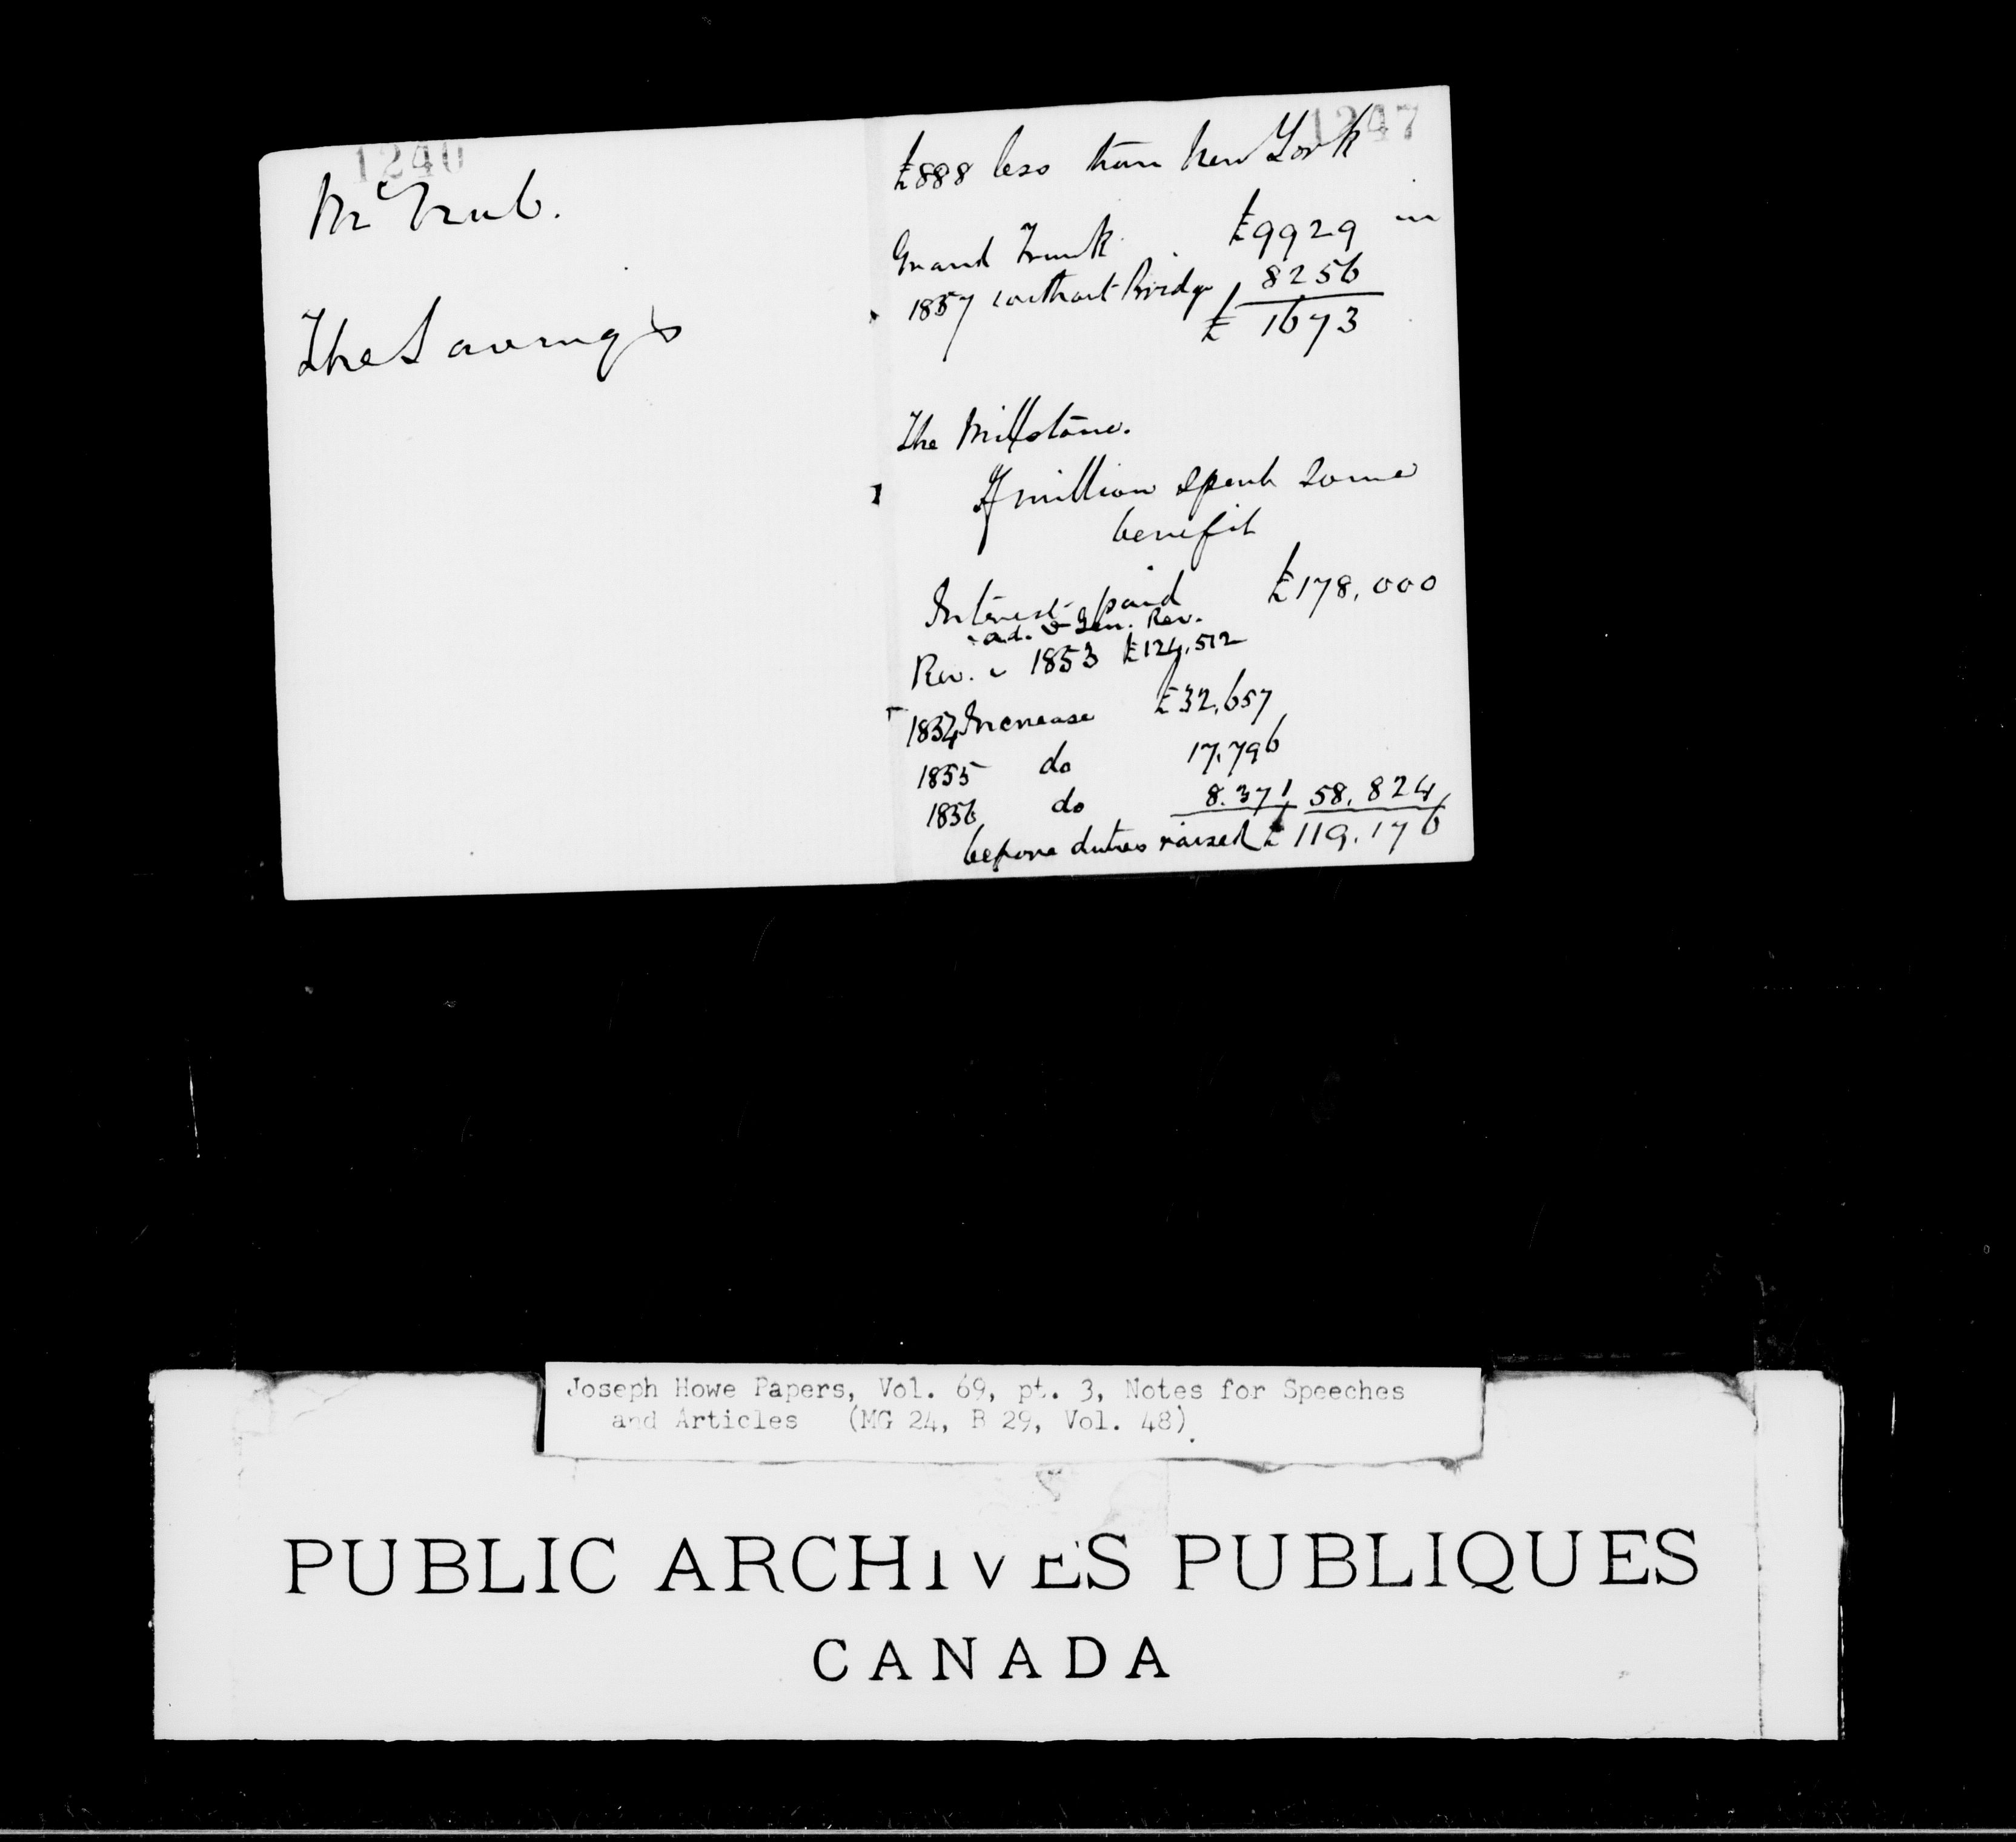 1240
McNab.
The Savings
1247
£888 less than New York
Grand Trunk £9929 in
1857 without Bridge 8256
£ 1673
The Millstone.
If million spent some
benefit
Interest paid £178,000
ad. & Gen. Rev.
Rev. 1853 £124,512
1854 Increase £32,657
1855 do 17,796
1856 do 8.371 58.824
before duties raised £119.176
Joseph Howe Papers, Vol. 69, pt. 3, Notes for Speeches
and Articles (MG 24, B 29, Vol. 48).
PUBLIC ARCHIVES PUBLIQUES
CANADA